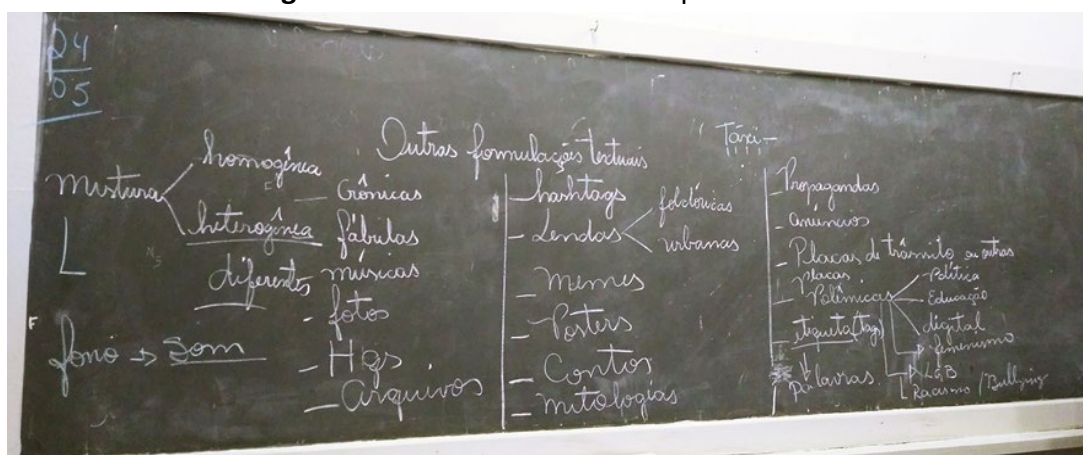 24
05
Mistura
homogênea
heterogênea
diferentes
fono → Som
Outras formulações textuais
— Crônicas
fábulas
— músicas
- fotos
— Hqs
— Arquivos
— hashtags
- Lendas
folclóricas
urbanas
— Memes
— Posters
— Contos
— mitologias
Táxi -
- Propagandas
- anúncios
- Placas de trânsito ou outras
placas
- Polêmicas
Política
Educação
digital
femenismo
Racismo / Bullying
- etiqueta (tags)
Palavras